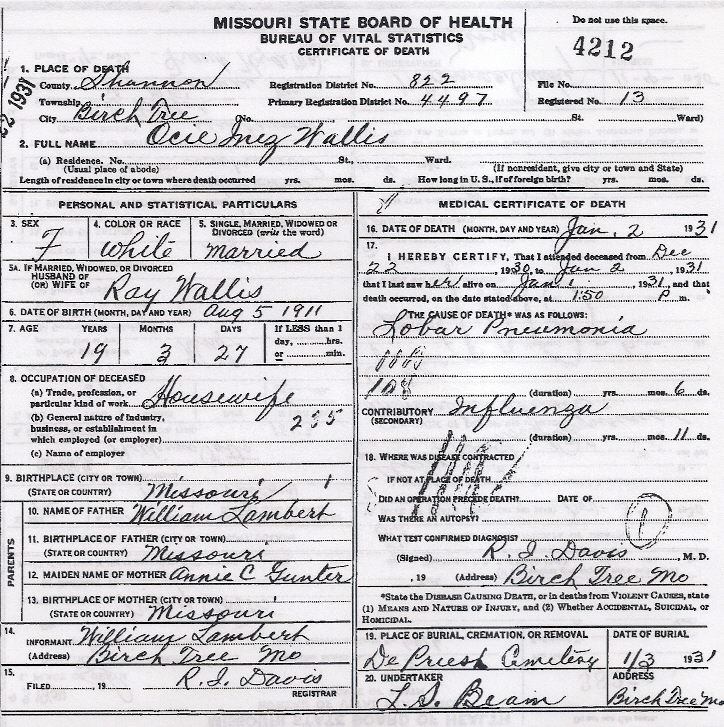 MISSOURI STATE BOARD OF HEALTH
BUREAU OF VITAL STATISTICS
CERTIFICATE OF DEATH
Do not use this space.
4212
1. PLACE OF DEATH
County Shannon Registration District No. 822 File No.
Township Primary Registration District No. 4497 Registered No. 13
City Birch Tree (No. St. Ward)
2. FULL NAME Ocie Inez Wallis
(a) Residence. No. St., Ward.
(Usual place of abode) (If nonresident, give city or town and State)
Length of residence in city or town where death occurred yrs. mos. ds. How long in U.S., if of foreign birth? yrs. mos. ds.
PERSONAL AND STATISTICAL PARTICULARS
3. SEX F
4. COLOR OR RACE White
5. SINGLE, MARRIED, WIDOWED OR DIVORCED (write the word) Married
5A. IF MARRIED, WIDOWED, OR DIVORCED
HUSBAND OF
(OR) WIFE OF Ray Wallis
6. DATE OF BIRTH (MONTH, DAY AND YEAR) Aug 5 1911
7. AGE YEARS MONTHS DAYS If LESS than 1
day, hrs.
19 3 27 or min.
8. OCCUPATION OF DECEASED
(a) Trade, profession, or
particular kind of work Housewife
(b) General nature of industry,
business, or establishment in 235
which employed (or employer)
(c) Name of employer
9. BIRTHPLACE (CITY OR TOWN)
(STATE OR COUNTRY) Missouri
PARENTS
10. NAME OF FATHER William Lambert
11. BIRTHPLACE OF FATHER (CITY OR TOWN)
(STATE OR COUNTRY) Missouri
12. MAIDEN NAME OF MOTHER Annie C Gunter
13. BIRTHPLACE OF MOTHER (CITY OR TOWN)
(STATE OR COUNTRY) Missouri
14.
INFORMANT William Lambert
(Address) Birch Tree Mo
15.
FILED , 19 R. I. Davis
REGISTRAR
MEDICAL CERTIFICATE OF DEATH
16. DATE OF DEATH (MONTH, DAY AND YEAR) Jan, 2 1931
17.
I HEREBY CERTIFY, That I attended deceased from Dec
22, 1930, to Jan 2, 1931
that I last saw her alive on Jan 1, 1931 and that
death occurred, on the date stated above, at 1:50 P m.
THE CAUSE OF DEATH* WAS AS FOLLOWS:
Lobar Pneumonia
108 (duration) yrs. mos. 6 ds.
CONTRIBUTORY Influenza
(SECONDARY)
(duration) yrs. mos. 11 ds.
18. WHERE WAS DISEASE CONTRACTED
IF NOT AT PLACE OF DEATH
DID AN OPERATION PRECEDE DEATH? DATE OF
WAS THERE AN AUTOPSY?
WHAT TEST CONFIRMED DIAGNOSIS?
(Signed) R. I. Davis M. D.
, 19 (Address) Birch Tree Mo
*State the DISEASE CAUSING DEATH, or in deaths from VIOLENT CAUSES, state
(1) MEANS AND NATURE OF INJURY, and (2) Whether ACCIDENTAL, SUICIDAL, or
HOMICIDAL.
19. PLACE OF BURIAL, CREMATION, OR REMOVAL DATE OF BURIAL
De Priest Cemetery 1/3 1931
20. UNDERTAKER ADDRESS
L. S. Beam Birch Tree Mo